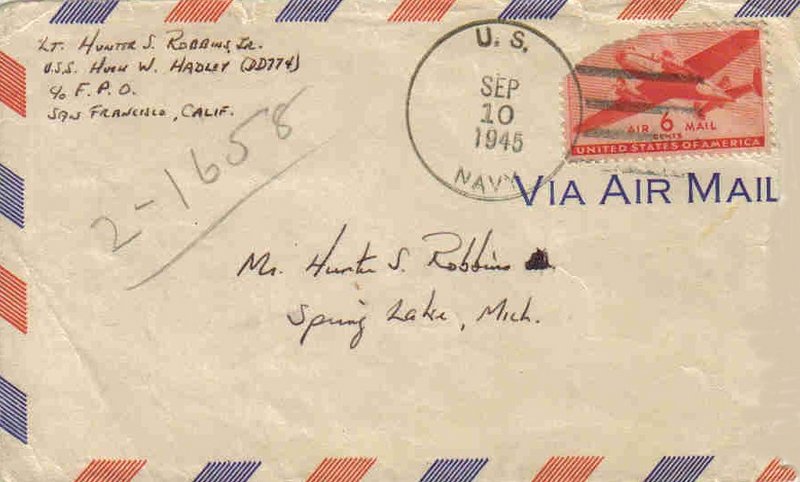 Lt. Hunter S. Robbins, Jr.
U.S.S. Hugh W. Hadley (DD774)
c/o F.P.O.
San Francisco, Calif.
2-1658
U.S.
SEP
10
1945
NAVY
AIR 6 MAIL
CENTS
UNITED STATES OF AMERICA
VIA AIR MAIL
Mr. Hunter S. Robbins
Spring Lake, Mich.